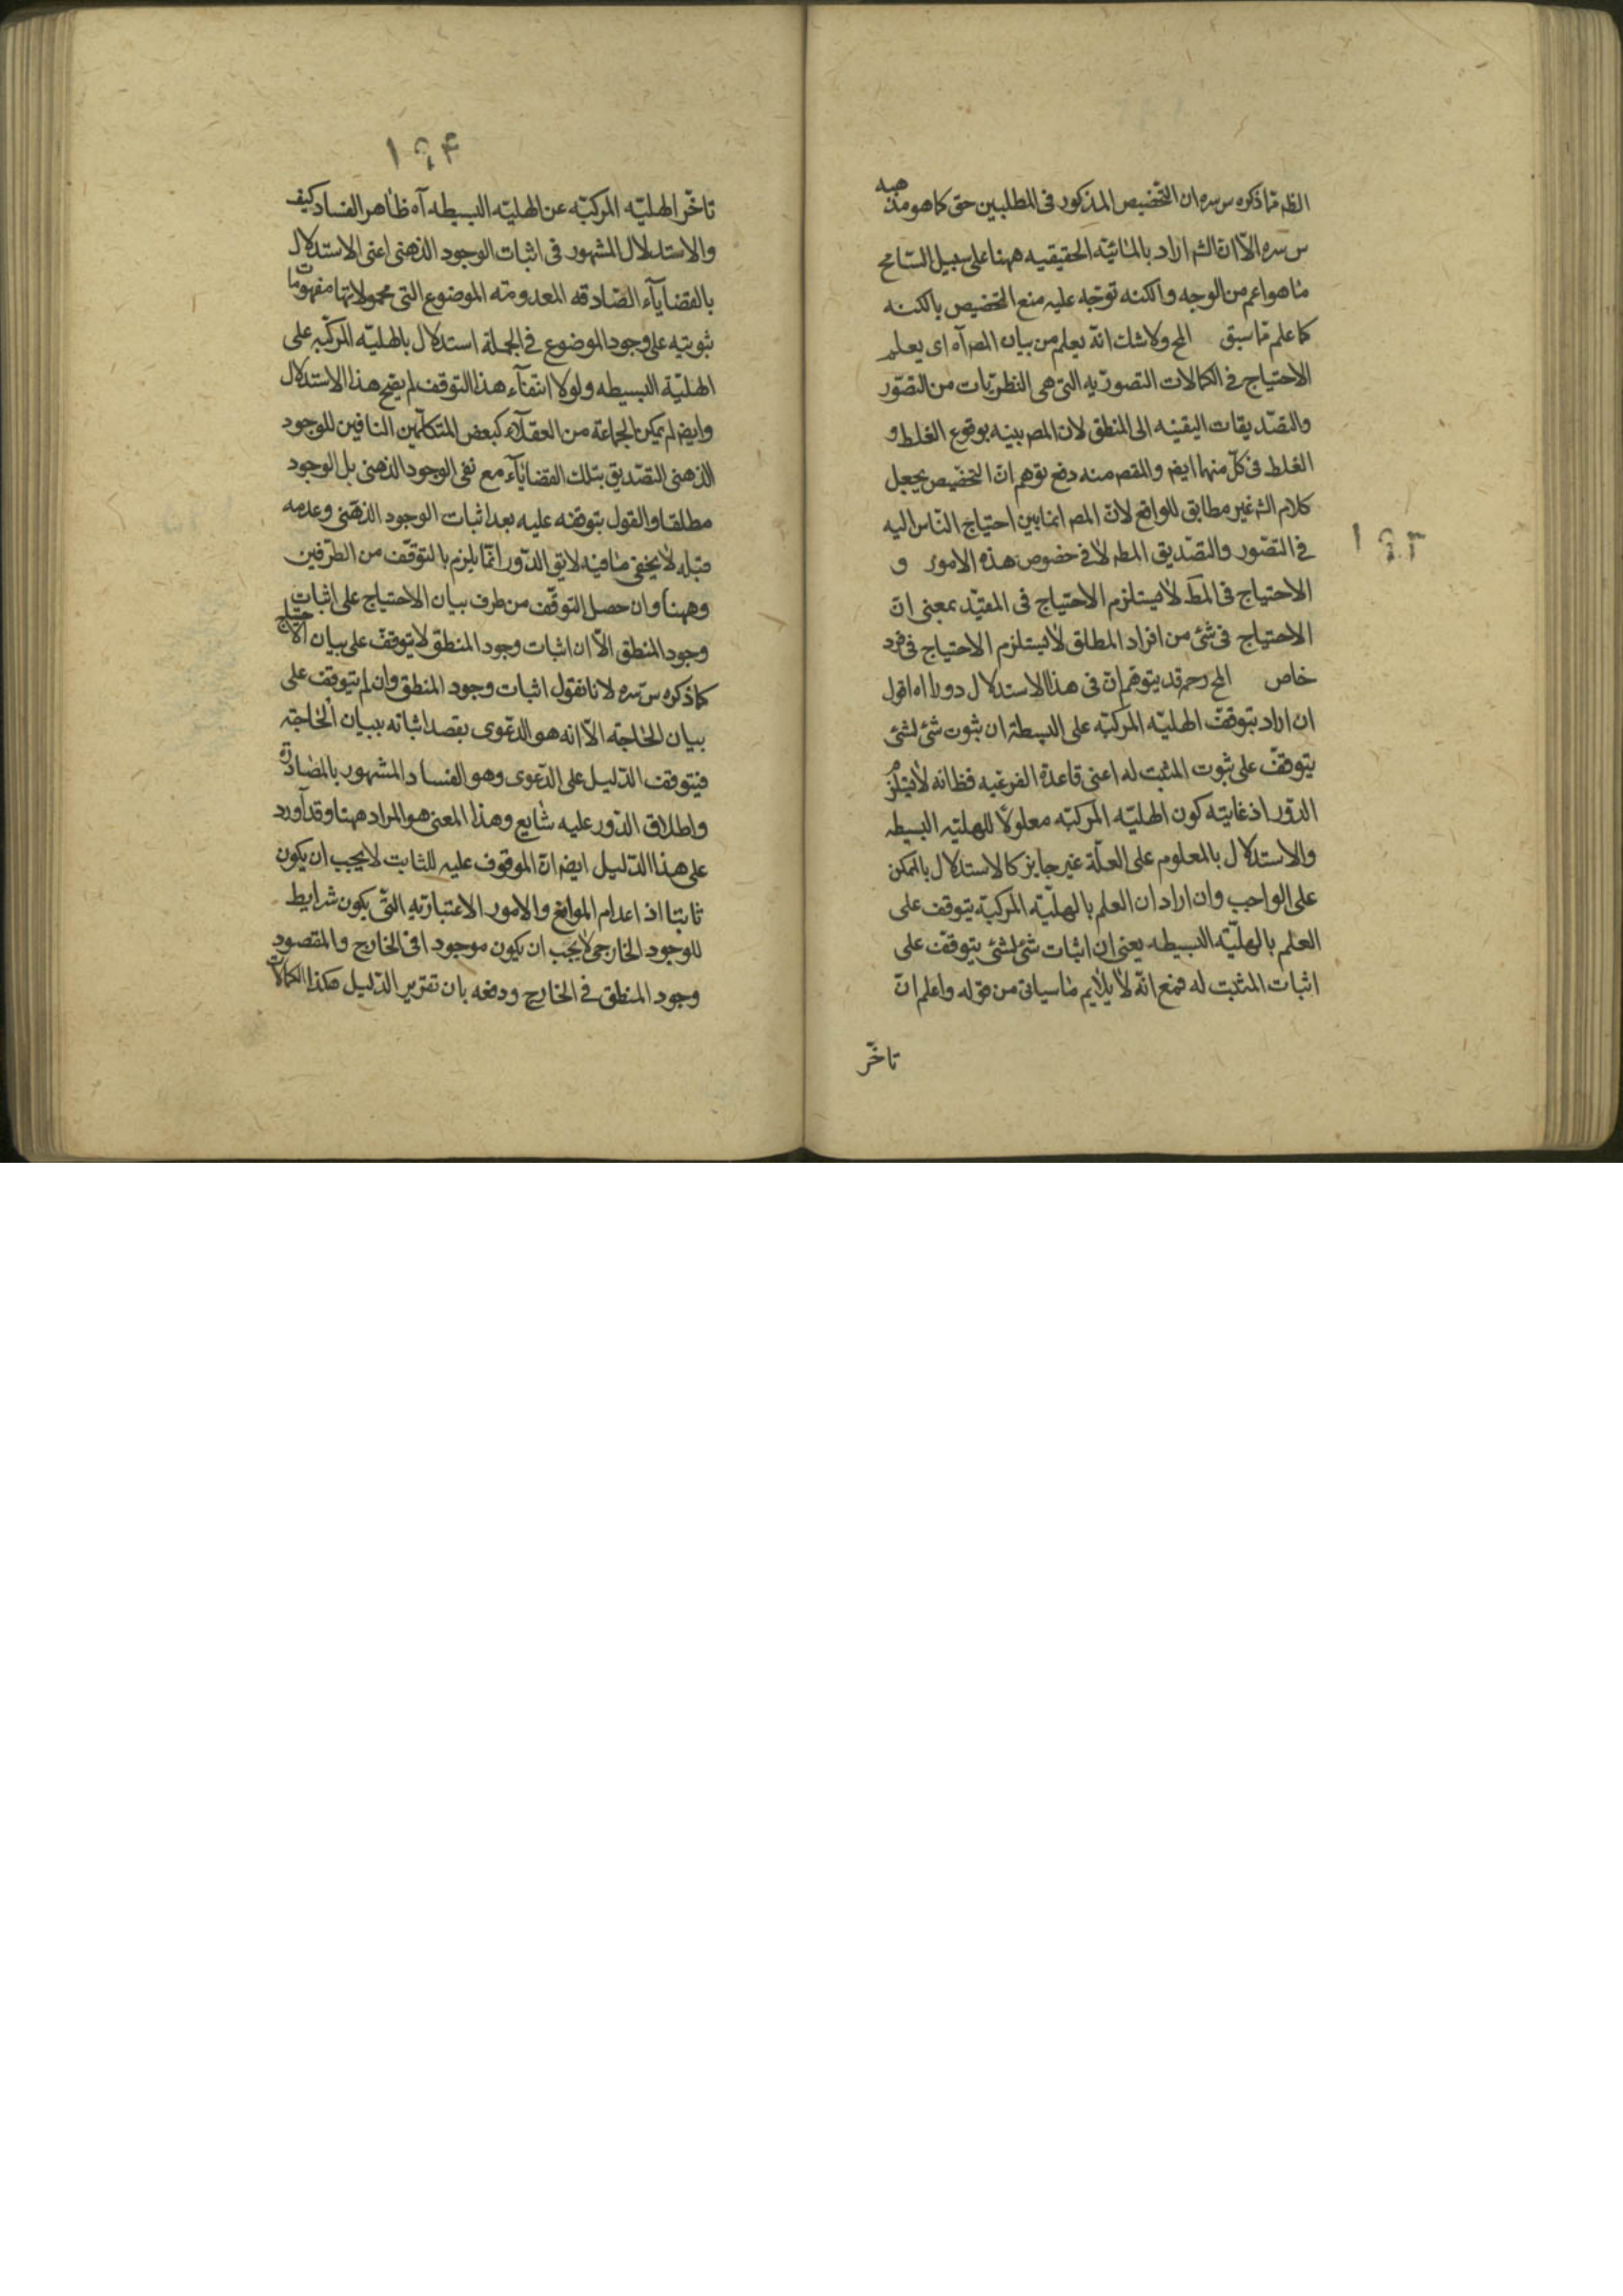 ۱۹۳
الظ مما ذكره س سره ان التخصيص المذكور فى المطلبين حق كما هو مذهبه
س سره الا ان الش اراد بالمائيّه الحقيقيه ههنا على سبيل التسامح
ما هو اعم من الوجه والكنه توجّه عليه منع التخصيص بالكنه
كما علم مما سبق المح ولا شك انه يعلم من بيان المص آه اى يعلم
الاحتياج فى الكمالات التصوريه التى هى النظريات من التصوّر
والتصديقات اليقينه الى المنطق لان المص بينه بوقوع الغلط و
الغلط فى كلّ منهما ايض والمقص منه دفع توهم ان التخصيص يجعل
كلام الش غير مطابق للواقع لانّ المص انما بين احتياج النّاس اليه
فى التصّور والتصّديق المط لا فى خصوص هذه الامور و
الاحتياج فى المط لا يستلزم الاحتياج فى المقيّد بمعنى انّ
الاحتياج فى شئ من افراد المطلق لا يستلزم الاحتياج فى فرد
خاص المح رحم قد يتوهم انّ فى هذا الاستدلال دورا اه اقول
ان اراد بتوقف الهليّه المركبّه على البسيطة ان ثبوت شئ لشئ
يتوقّف على ثبوت المثبت له اعنى قاعدة الفرعيه فظ انه لا يستلزم
الدّور اذ غايته كون الهليّه المركبّه معلولًا للهليّه البسيطه
والاستدلال بالمعلوم على العلّة غير جايز كالاستدلال بالممكن
على الواجب وان اراد ان العلم بالهليّه المركبّة يتوقف على
العلم بالهليّه البسيطه يعنى ان اثبات شئ لشئ يتوقّف على
اثبات المثبت له فمع انّه لا يلايم ما سياتى من قوله واعلم انّ
تاخّر
۱۹۴
تاخّر الهليّه المركبّه عن الهليّه البسيطه آه ظاهر الفساد كيف
والاستدلال المشهور فى اثبات الوجود الذهنى اعنى الاستدلال
بالقضاياء الصّادقه المعدومة الموضوع التى محمولاتها مفهومات
ثبوتيه على وجود الموضوع فى الجملة استدلال بالهليّه المركبّه على
الهليّة البسيطه ولولا انتفاء هذا التوقف لم يصح هذا الاستدلال
وايض لم يمكن لجماعة من العقلاء كبعض المتكلّمين النافين للوجود
الذهنى التصّديق بتلك القضاياء مع نفى الوجود الذهنى بل الوجود
مطلقا والقول بتوقفه عليه بعد اثبات الوجود الذهنى وعدمه
قبله لا يخفى ما فيه لا يق الدّور انمّا يلزم بالتوقّف من الطّرفين
وههنا وان حصل التوقّف من طرف بيان الاحتياج على اثبات
وجود المنطق الّا ان اثبات وجود المنطق لا يتوقّف على بيان الاحتياج
كما ذكره س سّره لانا نقول اثبات وجود المنطق وان لم يتوقف على
بيان الحاجة الّا انه هو الدّعوى بقصد اثباته ببيان الحاجة
فيتوقف الدّليل على الدّعوى وهو الفساد المشهور بالمصادرة
واطلاق الدّور عليه شايع وهذا المعنى هو المراد ههنا وقد اورد
على هذا الدّليل ايض انّ الموقوف عليه للثابت لا يجب ان يكون
ثابتا اذ اعدام الموانع والامور الاعتباريّه التّى يكون شرايط
للوجود الخارجى لا يجب ان يكون موجودا فى الخارج والمقصود
وجود المنطق فى الخارج ودفعه بان تقرير الدّليل هكذا الكمالات